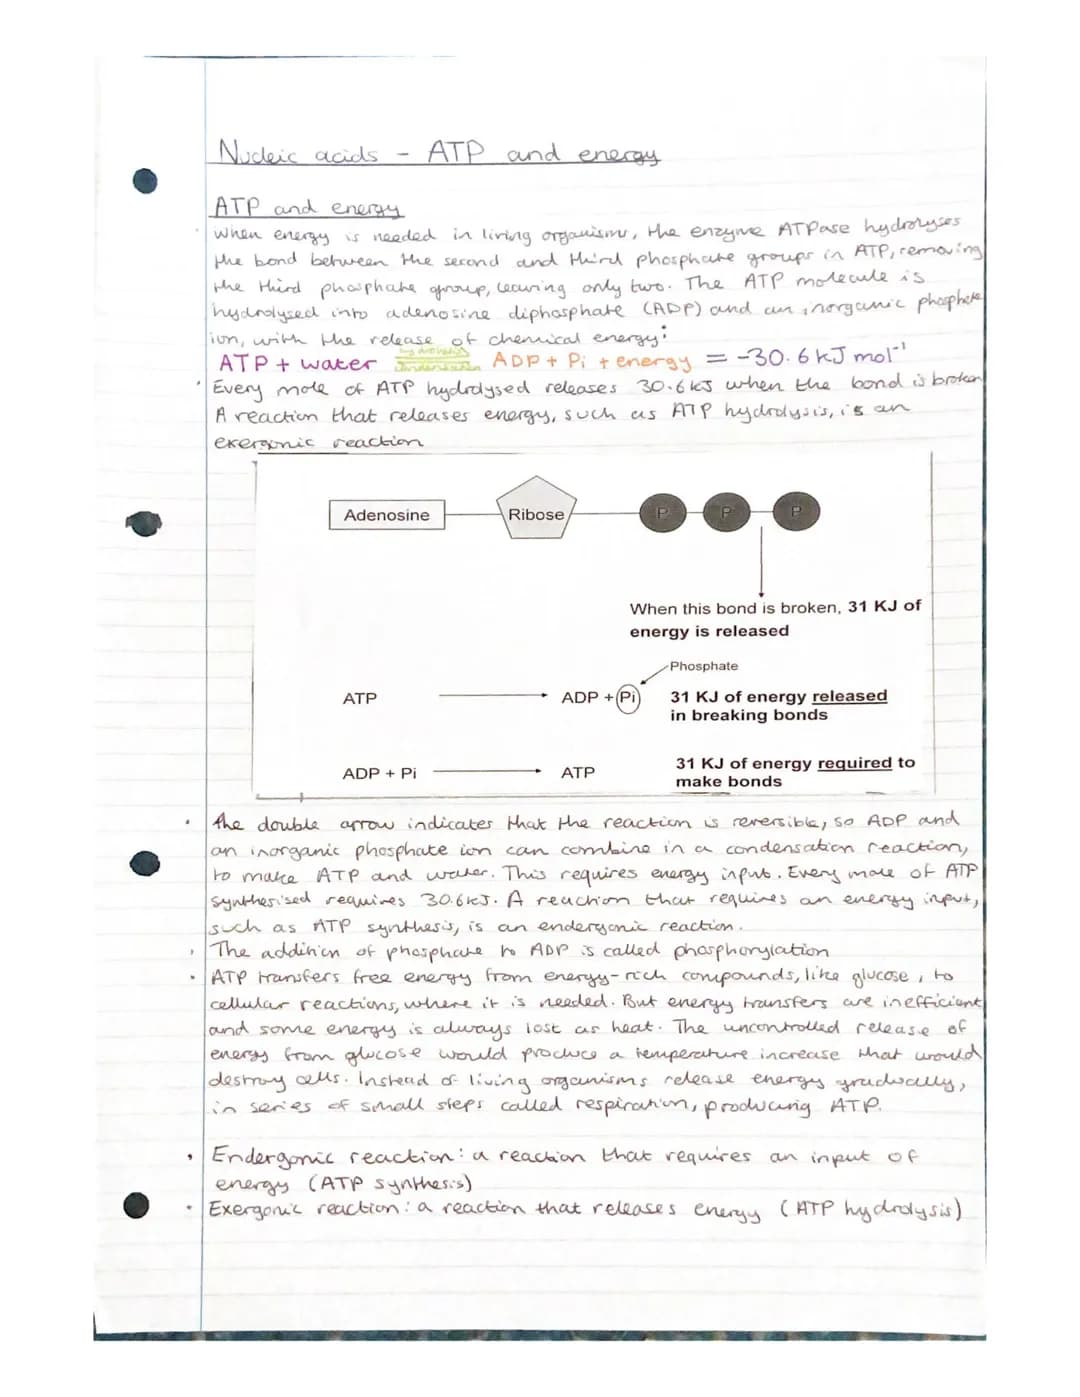 Nucleic acids - ATP and energy
ATP and energy
When energy is needed in living organisms, the enzyme ATPase hydrolyses
the bond between the second and third phosphate groups in ATP, removing
the third phosphate group, leaving only two. The ATP molecule is
hydrolysed into adenosine diphosphate (ADP) and an inorganic phosphate
ion, with the release of chemical energy:
hydrolysis
ATP + water ADP + Pi + energy = -30.6 kJ mol-1
condensation
· Every mole of ATP hydrolysed releases 30.6 kJ when the bond is broken
A reaction that releases energy, such as ATP hydrolysis, is an
exergonic reaction
Adenosine Ribose P P P
When this bond is broken, 31 KJ of
energy is released
Phosphate
ATP ADP + Pi 31 KJ of energy released
in breaking bonds
ADP + Pi ATP 31 KJ of energy required to
make bonds
· the double arrow indicates that the reaction is reversible, so ADP and
an inorganic phosphate ion can combine in a condensation reaction,
to make ATP and water. This requires energy input. Every mole of ATP
synthesised requires 30.6kJ. A reaction that requires an energy input,
such as ATP synthesis, is an endergonic reaction.
· The addition of phosphate to ADP is called phosphorylation
· ATP transfers free energy from energy-rich compounds, like glucose, to
cellular reactions, where it is needed. But energy transfers are inefficient
and some energy is always lost as heat. The uncontrolled release of
energy from glucose would produce a temperature increase that would
destroy cells. Instead of living organisms release energy gradually,
in series of small steps called respiration, producing ATP.
· Endergonic reaction: a reaction that requires an input of
energy (ATP synthesis)
· Exergonic reaction: a reaction that releases energy (ATP hydrolysis)